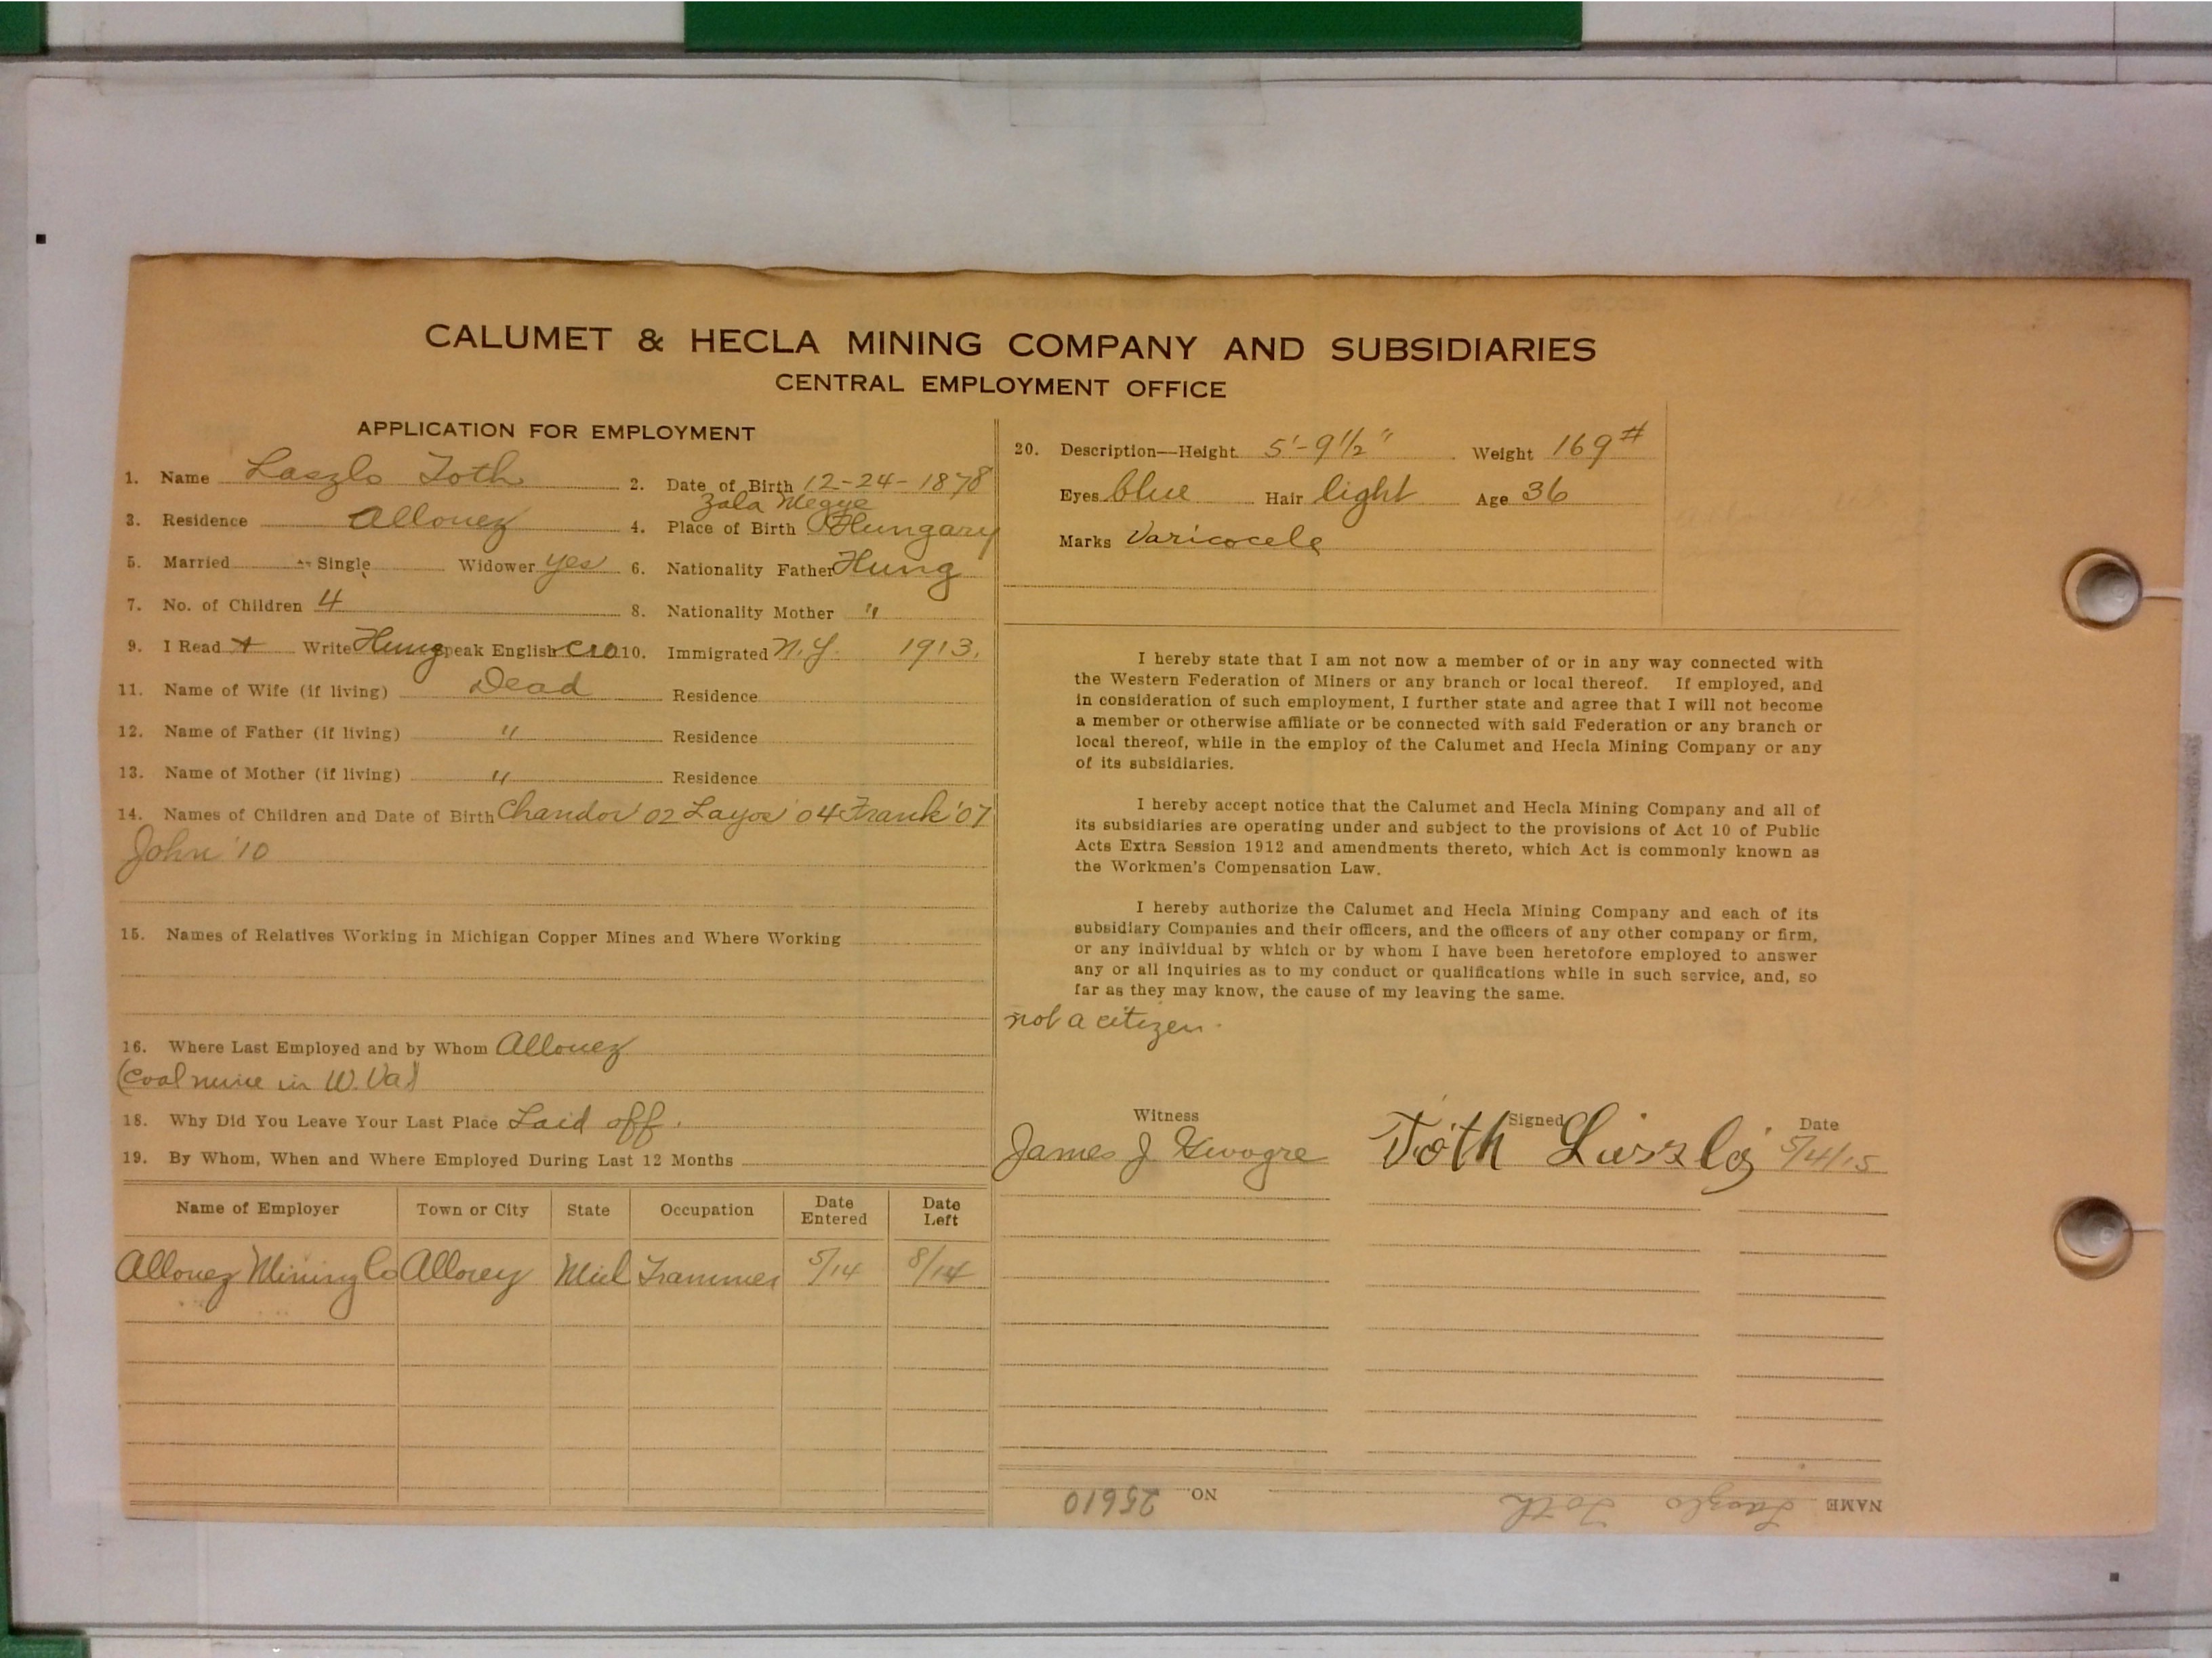 CALUMET & HECLA MINING COMPANY AND SUBSIDIARIES
CENTRAL EMPLOYMENT OFFICE
APPLICATION FOR EMPLOYMENT
1. Name Laszlo Toth 2. Date of Birth 12-24-1878
Zala Megye
3. Residence Allouez 4. Place of Birth Hungary
5. Married Single Widower yes 6. Nationality Father Hung
7. No. of Children 4 8. Nationality Mother "
9. I Read + Write Hung Speak English Cro 10. Immigrated N.Y. 1913.
11. Name of Wife (if living) Dead Residence
12. Name of Father (if living) " Residence
13. Name of Mother (if living) " Residence
14. Names of Children and Date of Birth Chandor '02 Layos '04 Frank '07
John '10
15. Names of Relatives Working in Michigan Copper Mines and Where Working
16. Where Last Employed and by Whom Allouez
(Coal mine in W. Va)
18. Why Did You Leave Your Last Place Laid off.
19. By Whom, When and Where Employed During Last 12 Months
Name of Employer Town or City State Occupation Date Entered Date Left
Allouez Mining Co Allouez Mich Trammer 5/14 8/14
20. Description—Height 5'-9 1/2" Weight 169#
Eyes blue Hair light Age 36
Marks Varicocele
I hereby state that I am not now a member of or in any way connected with
the Western Federation of Miners or any branch or local thereof. If employed, and
in consideration of such employment, I further state and agree that I will not become
a member or otherwise affiliate or be connected with said Federation or any branch or
local thereof, while in the employ of the Calumet and Hecla Mining Company or any
of its subsidiaries.
I hereby accept notice that the Calumet and Hecla Mining Company and all of
its subsidiaries are operating under and subject to the provisions of Act 10 of Public
Acts Extra Session 1912 and amendments thereto, which Act is commonly known as
the Workmen's Compensation Law.
I hereby authorize the Calumet and Hecla Mining Company and each of its
subsidiary Companies and their officers, and the officers of any other company or firm,
or any individual by which or by whom I have been heretofore employed to answer
any or all inquiries as to my conduct or qualifications while in such service, and, so
far as they may know, the cause of my leaving the same.
not a citizen.
Witness Signed Date
James J Tóth László 5/4/15
NAME Laszlo Toth NO. 25610